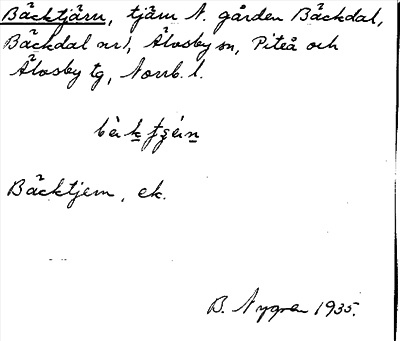 Bäcktjärn, tjärn N. gården Bäckdal,
Bäckdal nr 1, Älvsby sn, Piteå och
Älvsby tg, Norrb. l.
Bäcktjern, ek.
B. Nygren 1935.